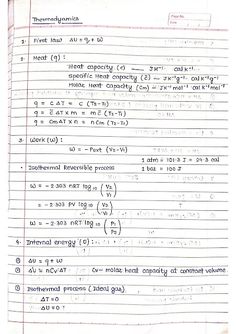 Thermodynamics
Page No.
Date
1. First law ΔU = q + w
2. Heat (q) :
Heat capacity (c) → JK⁻¹ cal K⁻¹
Specific Heat capacity (c̄) → JK⁻¹g⁻¹ cal K⁻¹g⁻¹
Molar Heat capacity (Cm) → JK⁻¹mol⁻¹ cal K⁻¹mol⁻¹
q = C ΔT = C (T₂-T₁)
q = c̄ ΔT × m = m c̄ (T₂-T₁)
q = Cm ΔT × n = n Cm (T₂-T₁)
3. Work (W) :
W = - Pext (V₂-V₁)
1 atm = 101.3 J = 24.3 cal
1 bar = 100 J
Isothermal Reversible process
W = - 2.303 nRT log₁₀ (V₂/V₁)
W = - 2.303 nRT log₁₀ (P₁/P₂)
4. Internal energy (U) :
① ΔU = q + W
② ΔU = nCv ΔT Cv - molar heat capacity at constant volume
③ Isothermal process (Ideal gas)
ΔT = 0
ΔU = 0